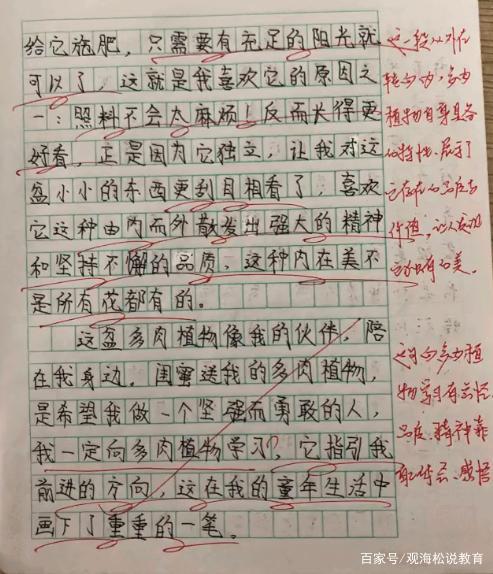 给它施肥，只需要有充足的阳光就
可以了，这就是我喜欢它的原因之
一：照料不会太麻烦！反而长得更
好看，正是因为它独立，让我对这
盆小小的东西更刮目相看了，喜欢
它这种由内而外散发出强大的精神
和坚持不懈的品质，这种内在美不
是所有花都有的。
这盆多肉植物像我的伙伴，陪
在我身边，闺蜜送我的多肉植物，
是希望我做一个坚强而勇敢的人，
我一定向多肉植物学习？它指引我
前进的方向，这在我的童年生活中
画下了重重的一笔。
这一段从外在
植物自身具备
的特性、展示了
价值，让人发现
百家号/观海松说教育